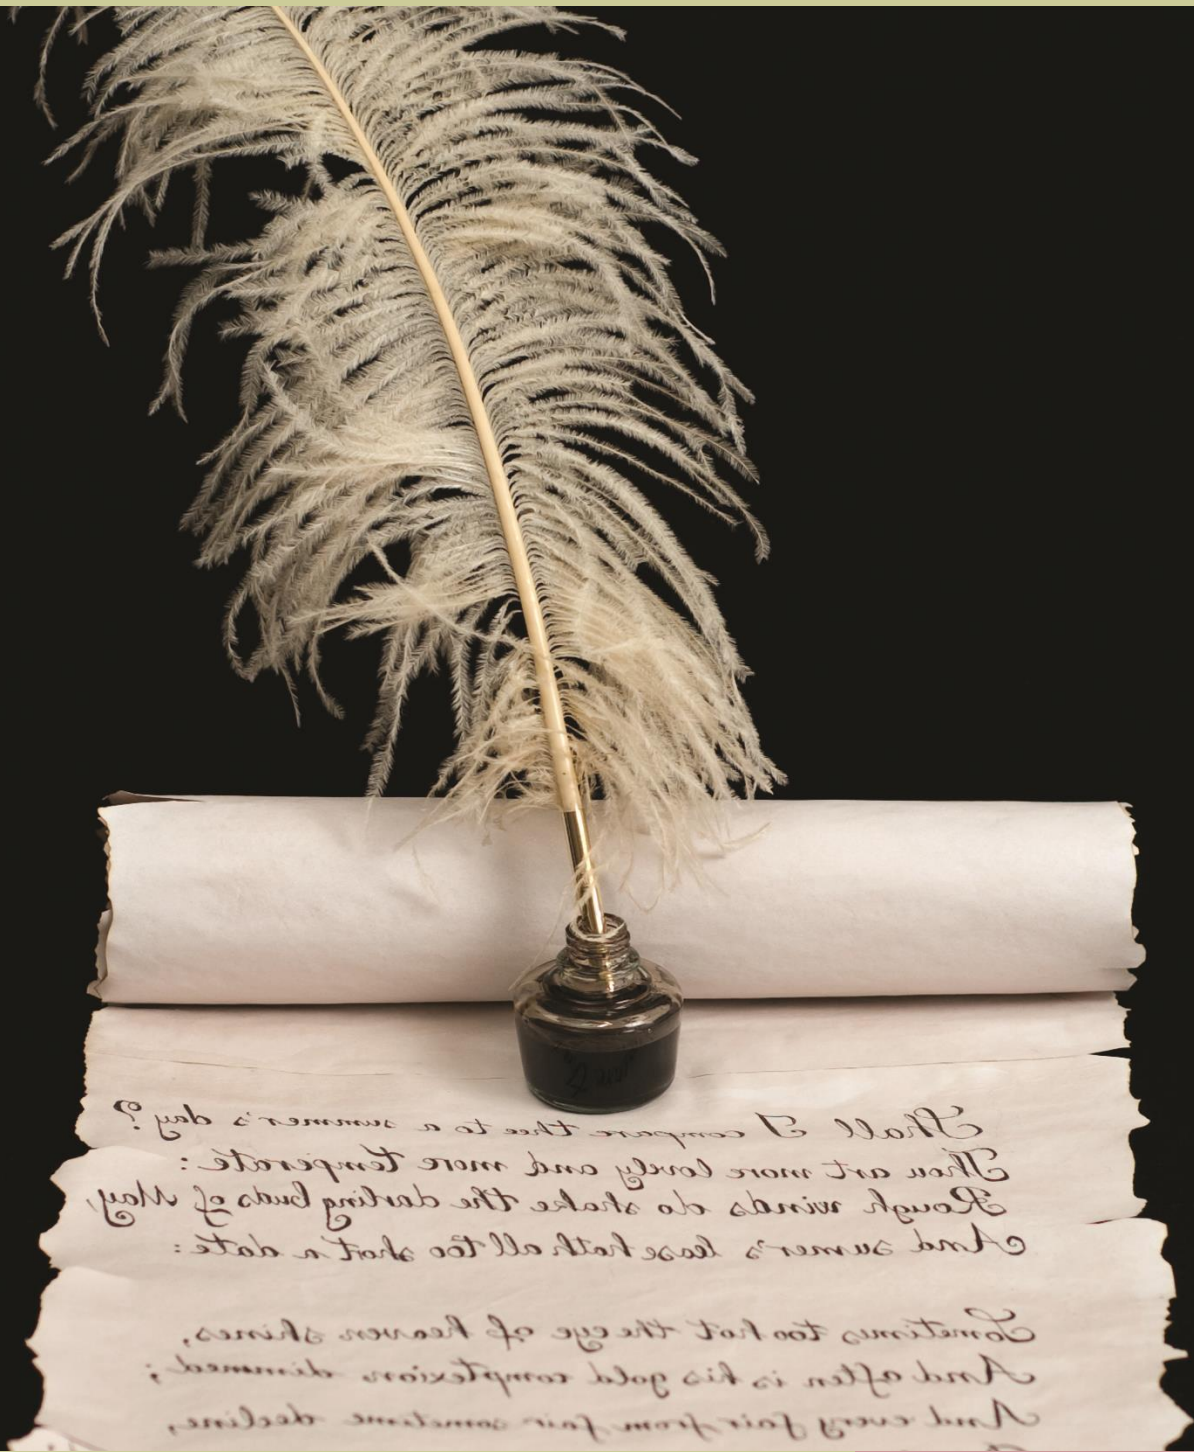 Shall I compare thee to a summer's day?
Thou art more lovely and more temperate:
Rough winds do shake the darling buds of May,
And sumer's lease hath all too short a date:
Sometimes too hot the eye of heaven shines,
And often is his gold complexion dimmed;
And every fair from fair sometime decline,